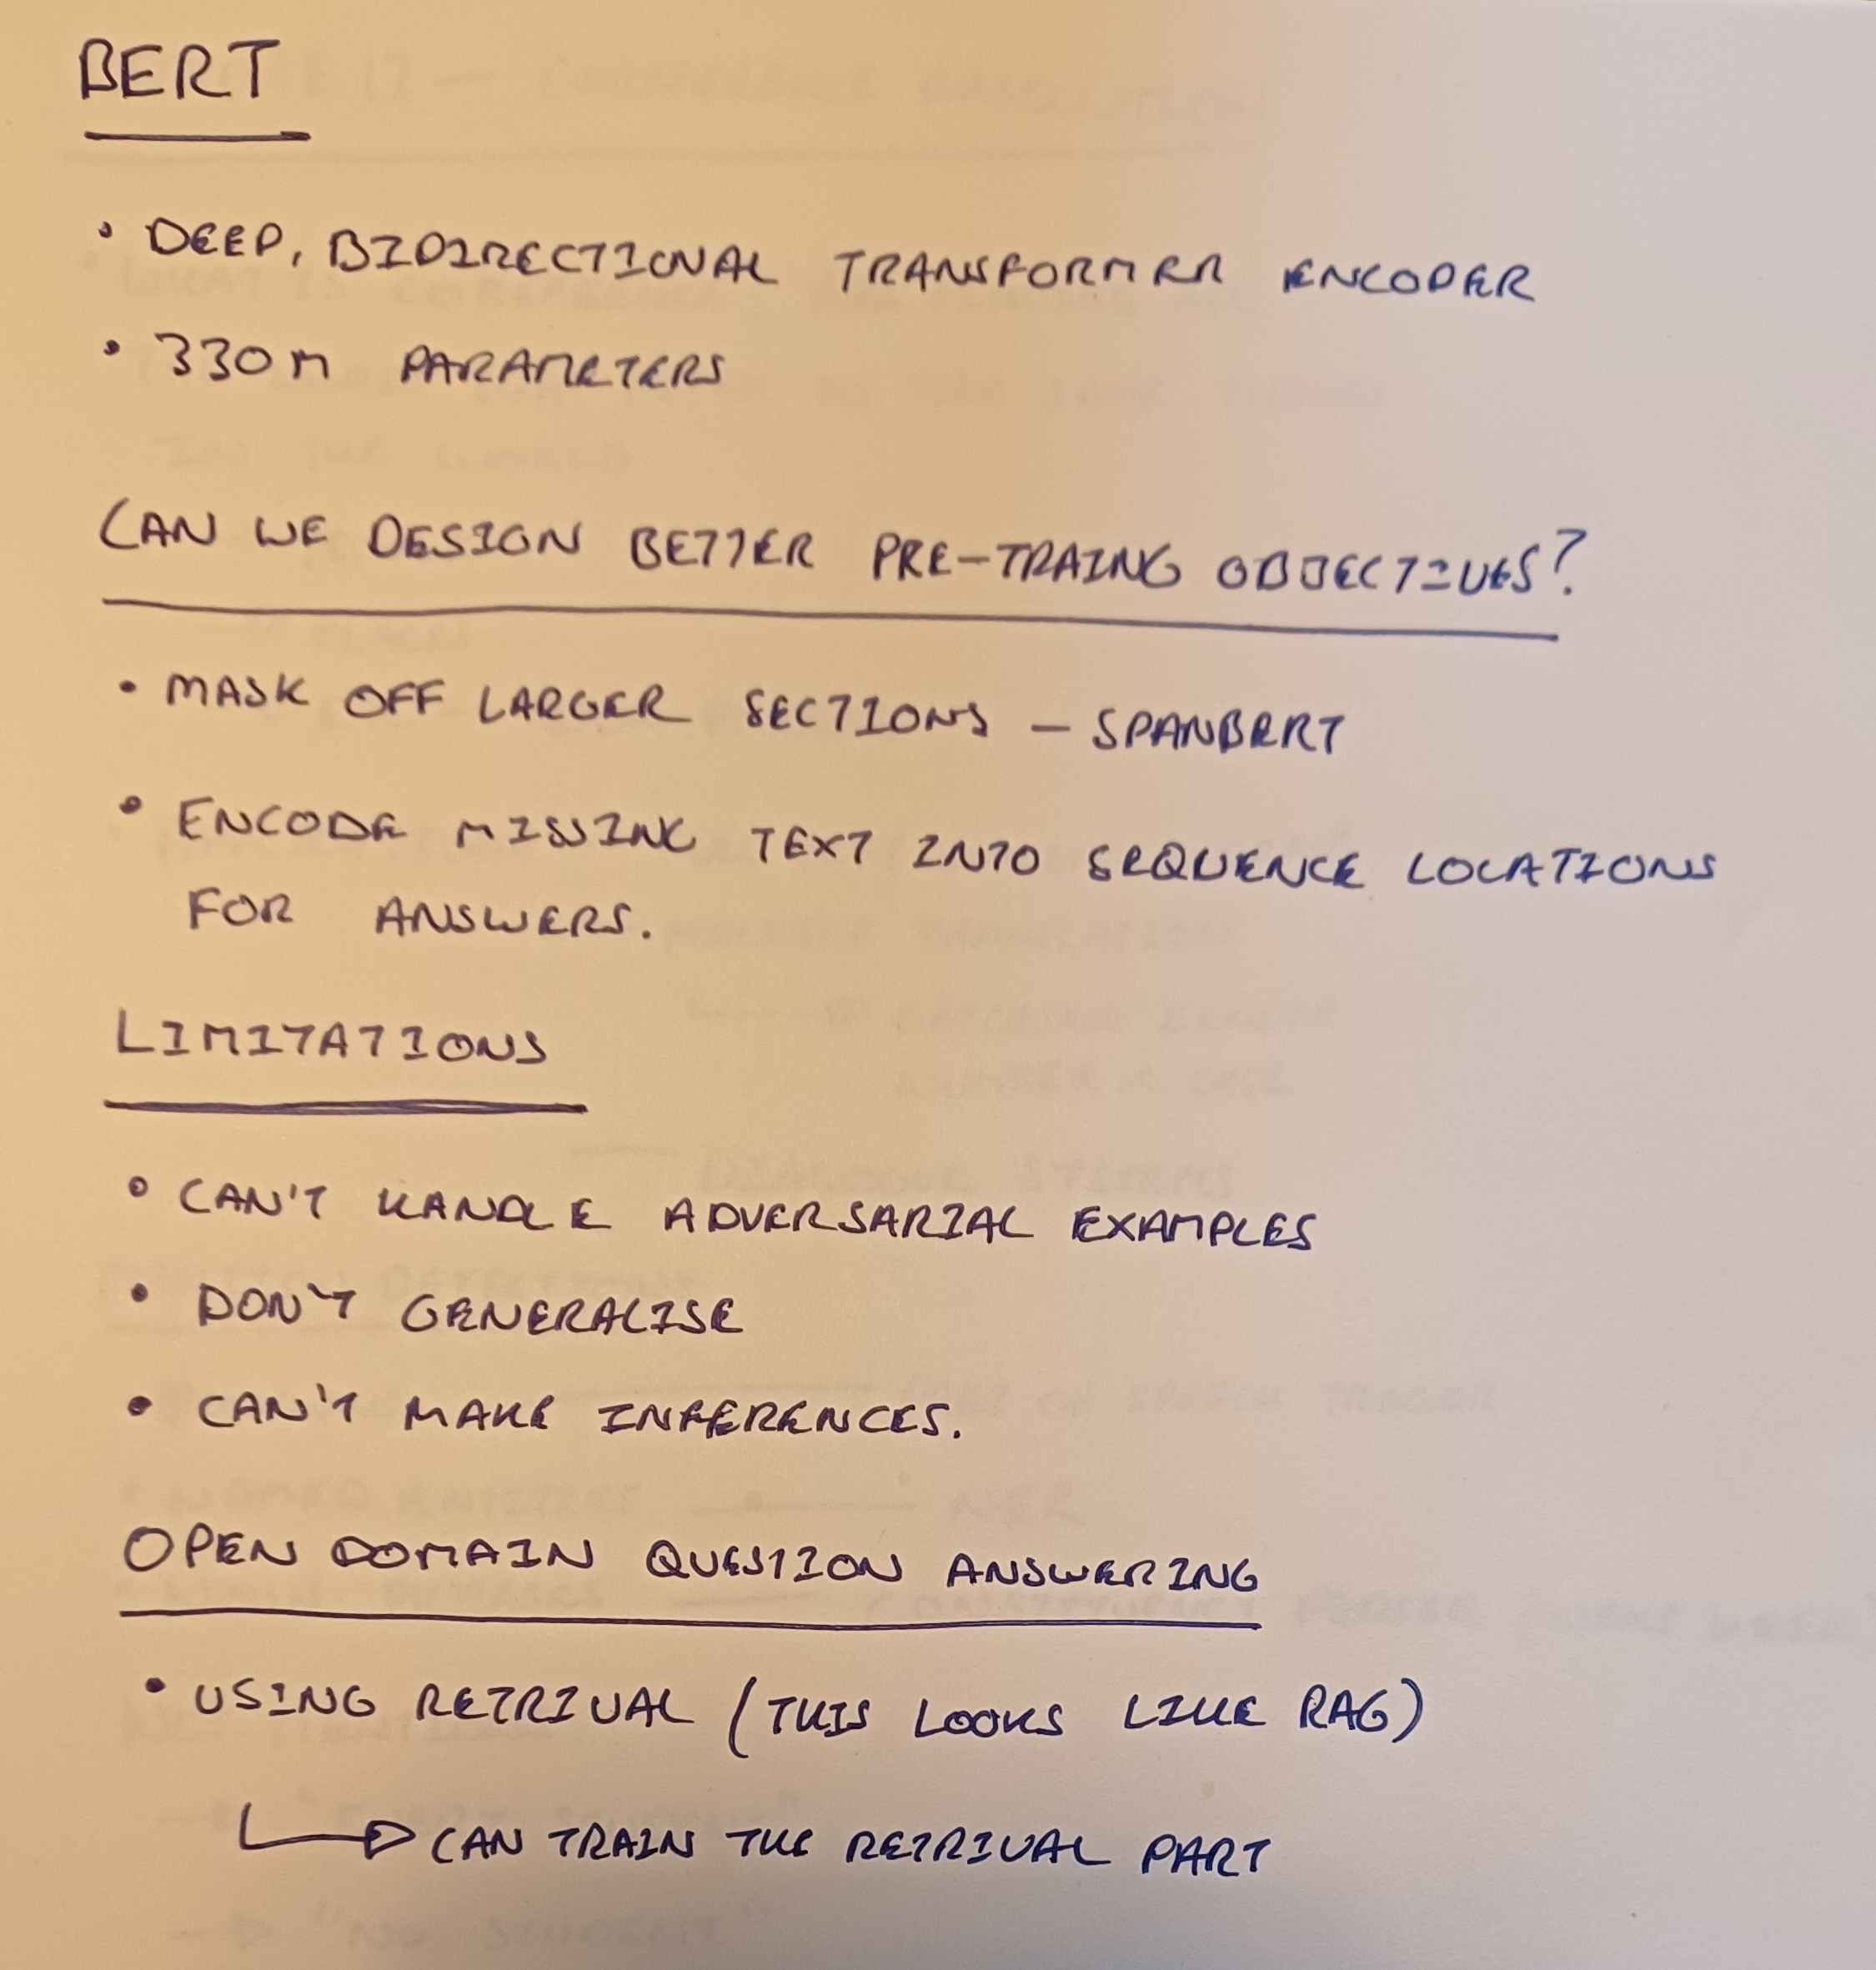 BERT
• DEEP, BIDIRECTIONAL TRANSFORMER ENCODER
• 330M PARAMETERS
CAN WE DESIGN BETTER PRE-TRAING OBJECTIVES?
• MASK OFF LARGER SECTIONS – SPANBERT
• ENCODE MISSING TEXT INTO SEQUENCE LOCATIONS
FOR ANSWERS.
LIMITATIONS
• CAN'T HANDLE ADVERSARIAL EXAMPLES
• DON'T GENERALISE
• CAN'T MAKE INFERENCES.
OPEN DOMAIN QUESTION ANSWERING
• USING RETRIVAL (THIS LOOKS LIKE RAG)
↳ CAN TRAIN THE RETRIVAL PART